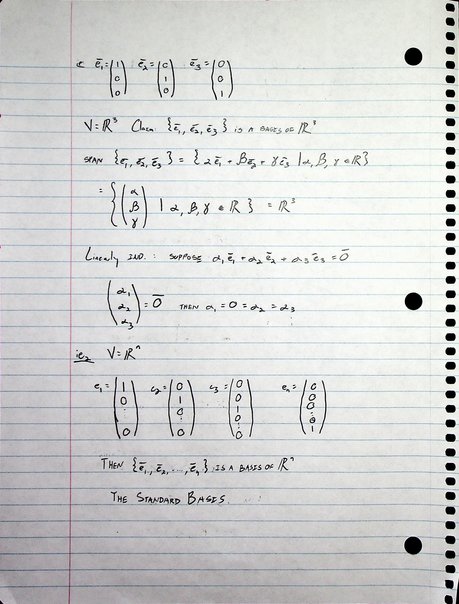 ē₁ = (1 0 0) ē₂ = (0 1 0) ē₃ = (0 0 1)
V = ℝ³ Claim: {ē₁, ē₂, ē₃} IS A BASES OF ℝ³
SPAN {ē₁, ē₂, ē₃} = { αē₁ + βē₂ + γē₃ | α, β, γ ∈ ℝ}
= { (α β γ) | α, β, γ ∈ ℝ } = ℝ³
Linearly IND.: SUPPOSE α₁ē₁ + α₂ē₂ + α₃ē₃ = 0̄
(α₁ α₂ α₃) = 0̄ THEN α₁ = 0 = α₂ = α₃
ie₂ V = ℝⁿ
e₁ = (1 0 : 0) e₂ = (0 1 0 : 0) e₃ = (0 0 1 0 : 0) eₙ = (0 0 0 : 0 1)
THEN {ē₁, ē₂, ..., ēₙ} IS A BASIS OF ℝⁿ
THE STANDARD BASIS.